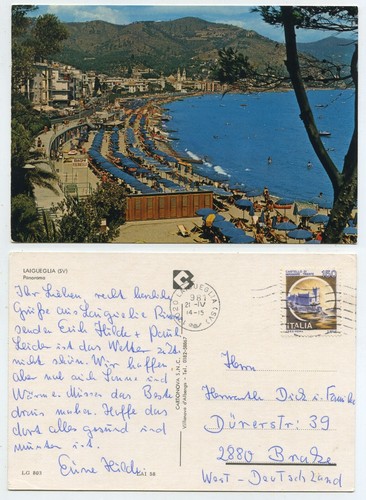 LAIGUEGLIA (SV)
Panorama
Ihr Lieben, recht herzliche
Grüße aus Laigueglia
senden Euch Hilde + Paul
Leider ist das Wetter
nicht schön. Wir hoffen
aber auf Sonne und
Wärme. Müssen das Beste
draus machen. Hoffe das
dort alles gesund und
munter ist.
Eure Hilde
L.G 865
CARTONOVA S.N.C.
Villanova d'Albenga - Tel. 0182-58067
LAIGUEGLIA (SV)
981
21-IV
14-15
ITALIA
Herrn
Dick u. Familie
Dürerstr. 39
2880 Brake
West-Deutschland